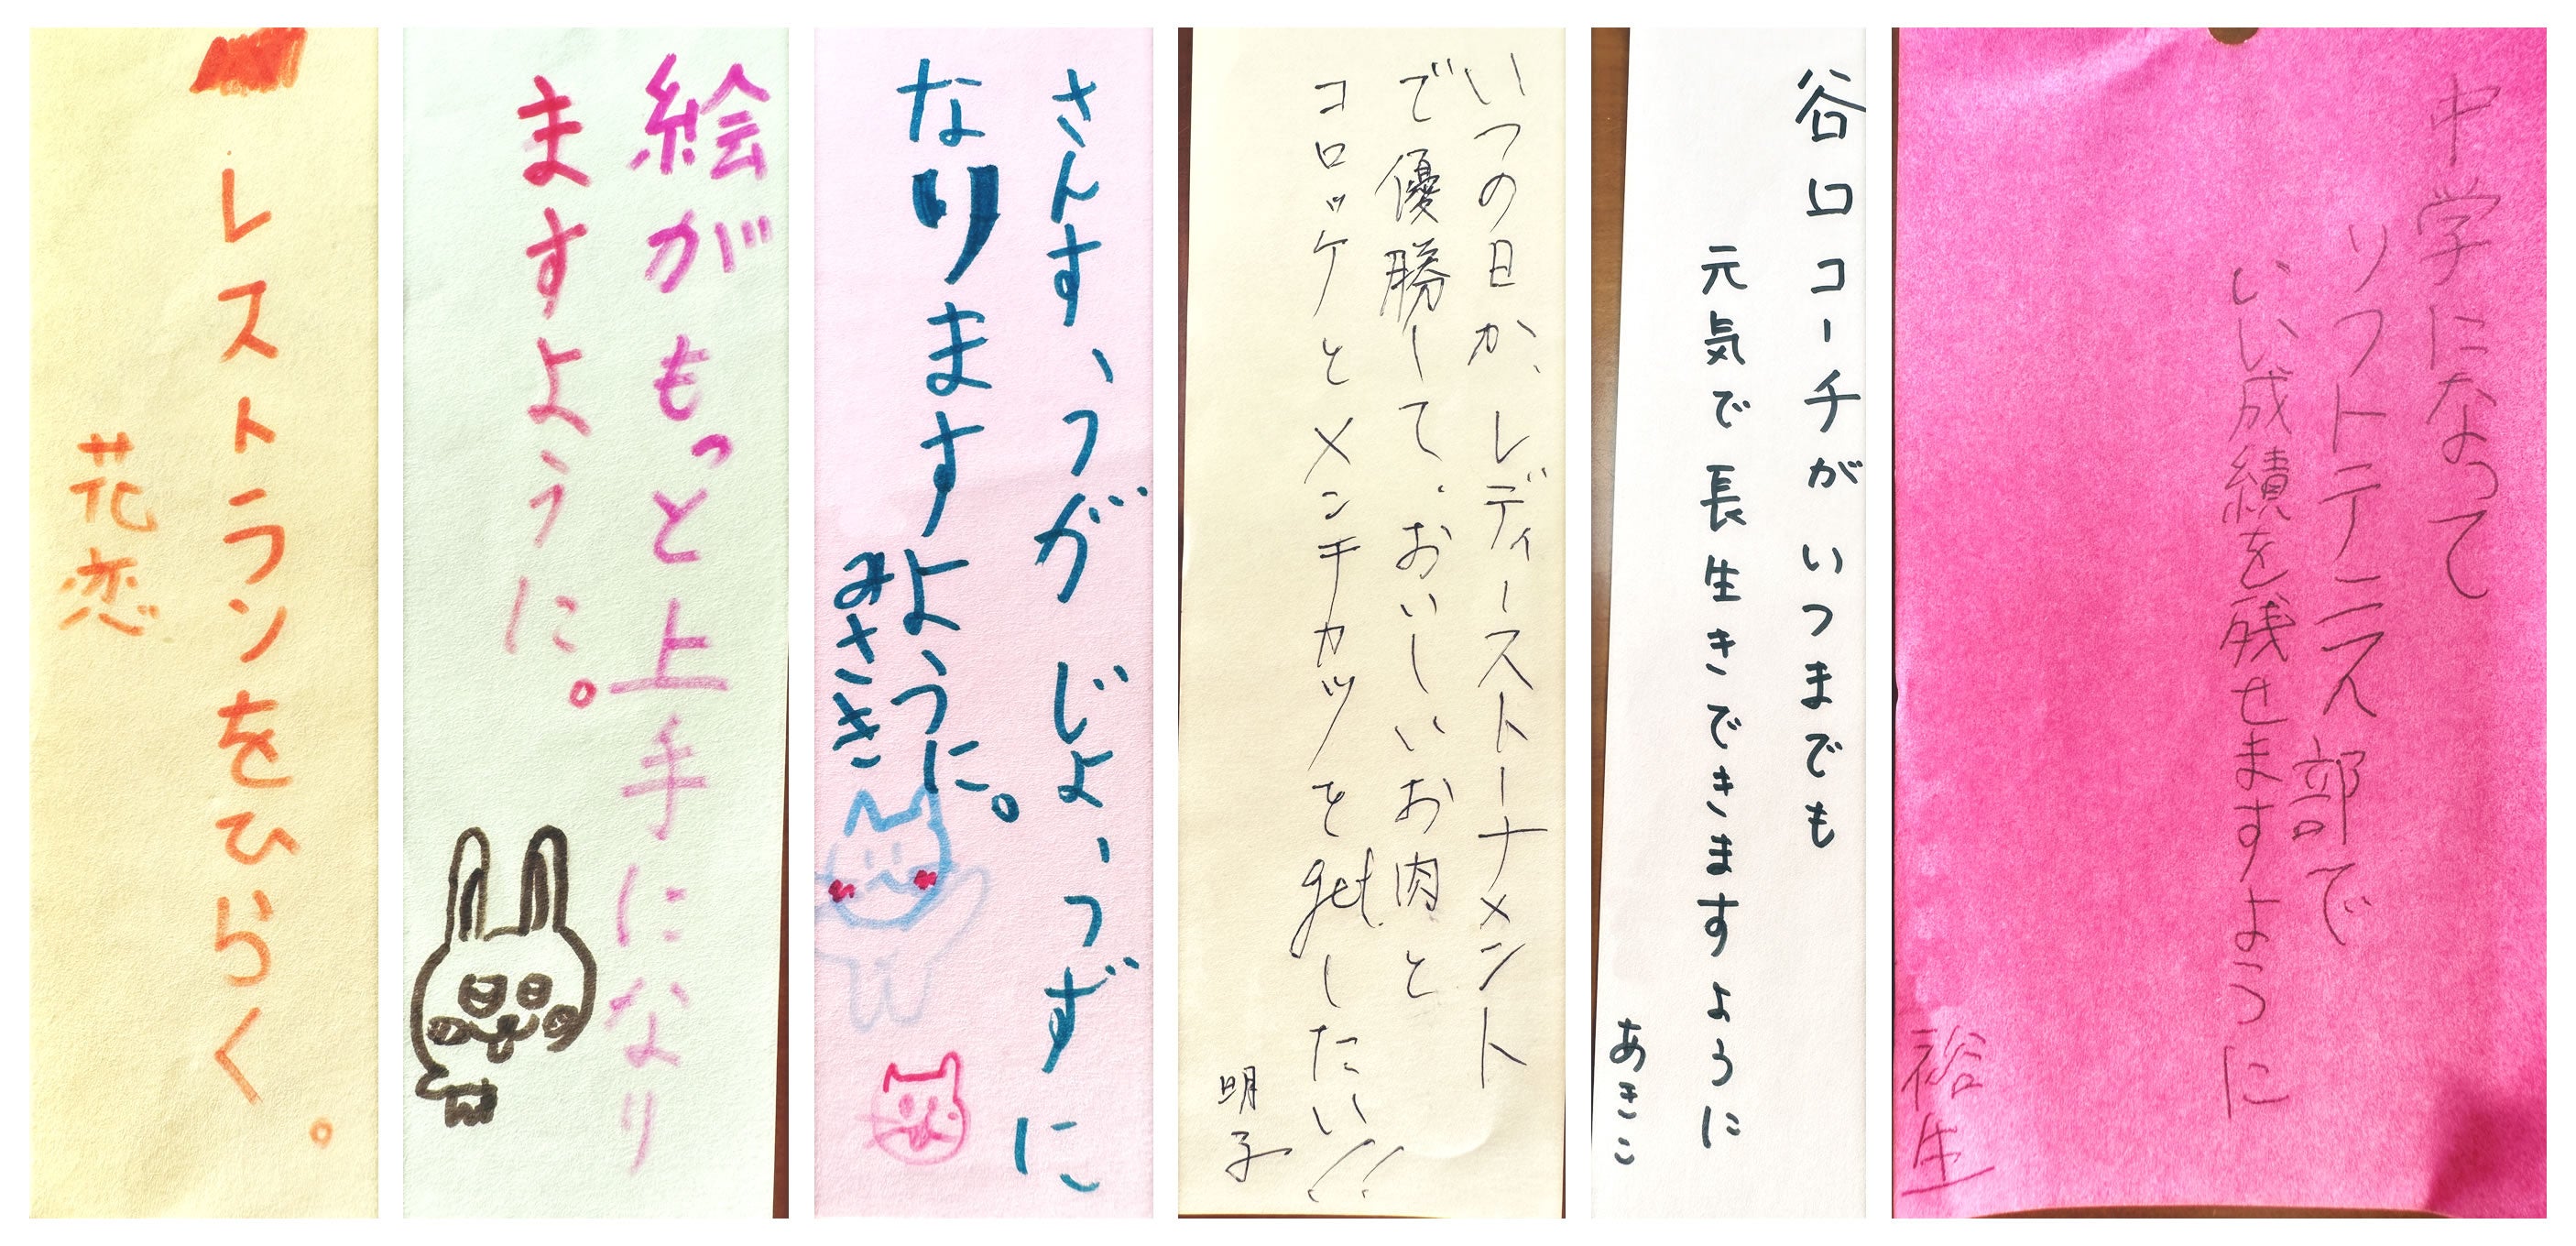 レストランをひらく。
花恋
絵がもっと上手になり
ますように。
さんすうが じょうずに
なりますように。
みさき
いつの日か、レディーストーナメント
で優勝して、おいしいお肉と
コロッケとメンチカツをgetしたい!!
明子
谷口コーチがいつまでも
元気で長生きできますように
あきこ
中学になって
ソフトテニス部で
いい成績を残せますように
裕生